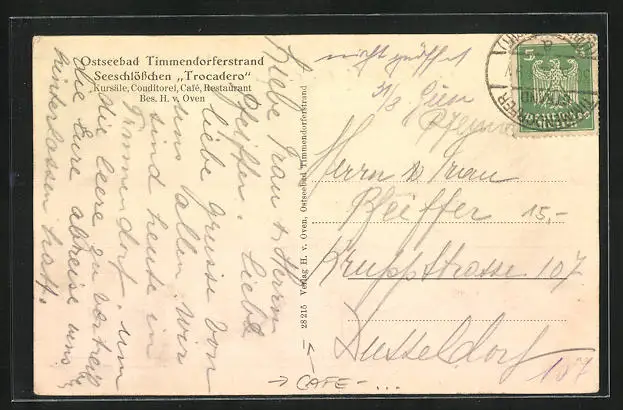 Ostseebad Timmendorferstrand
Seeschlößchen „Trocadero“
Kursäle, Conditorei, Café, Restaurant
Bes. H. v. Oven
Liebe Frau & Herrn
Pfeiffer. Liebe
liebe Grüsse von
uns allen. Wir
sind heute in
Timmendorf, um
die leere zu vertreib
die Eure abreise uns
hinterlassen hat.
— 28215 Verlag H. v. Oven, Ostseebad Timmendorferstrand
nicht geöffnet
31/8
Herrn & Frau
Pfeiffer 15,-
Kruppstrasse 107
Dusseldorf
107
→ CAFE - ...
5